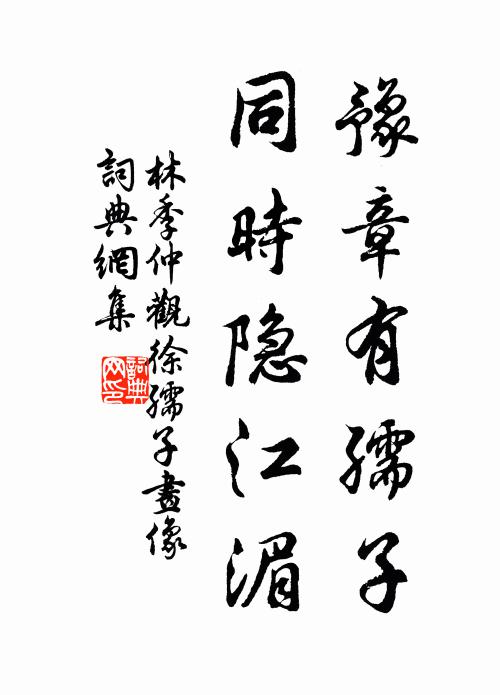 豫章有孺子
同時隐江湄
林季仲觀徐孺子畫像
詞典網集
詞典
网印